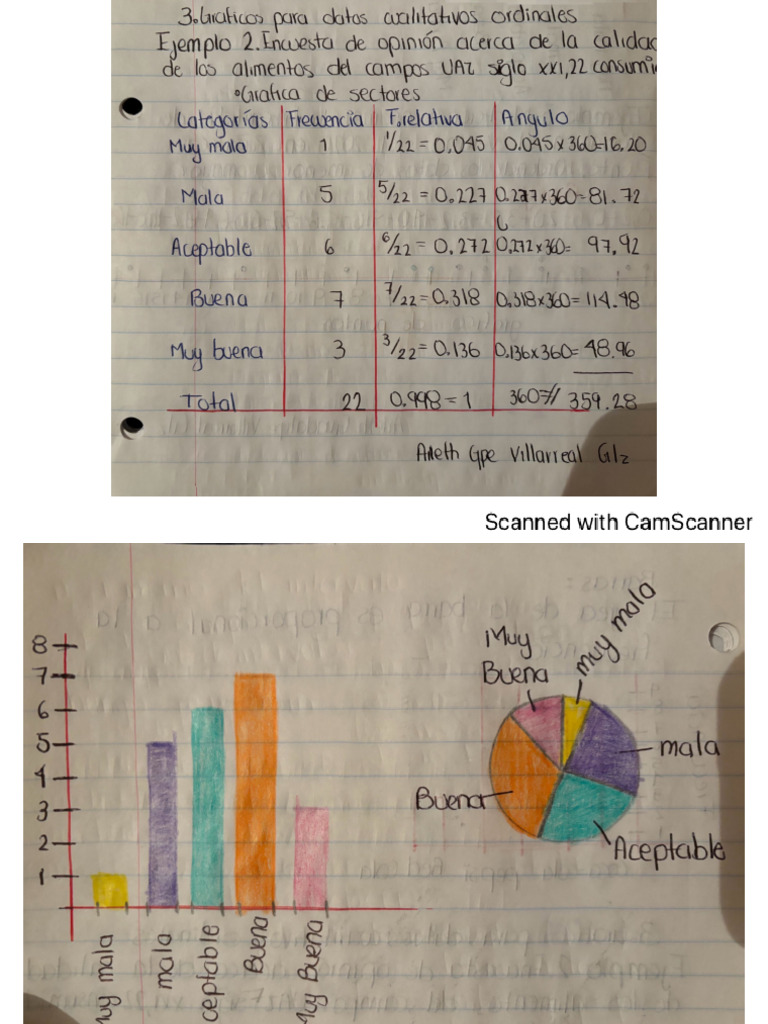 3. Graficos para datos cualitativos ordinales
Ejemplo 2. Encuesta de opinión acerca de la calidad
de los alimentos del campos UAZ siglo xxi, 22 consumi
•Grafica de sectores
Categorías Frecuencia F. relativa Angulo
Muy mala 1 1/22 = 0.045 0.045 x 360=16.20
Mala 5 5/22 = 0.227 0.227x360=81.72
Aceptable 6 6/22 = 0.272 0.272x360= 97.92
Buena 7 7/22=0.318 0.318x360=114.48
Muy buena 3 3/22=0.136 0.136x360=48.96
Total 22 0.998=1 360=// 359.28
Arleth Gpe Villarreal Glz
Scanned with CamScanner
8
7
6
5
4
3
2
1
Muy mala
mala
ceptable
Buena
Muy Buena
¡Muy
Buena
muy mala
mala
Buena
Aceptable